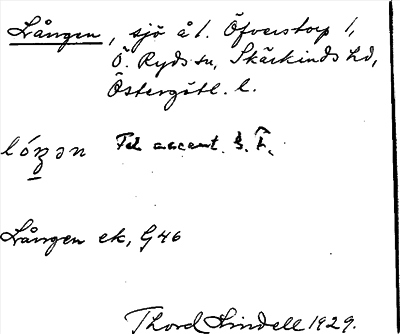 Lången, sjö å 1. Öfverstorp 1,
Ö. Ryds sn, Skärkinds hd,
Östergötl. l.
lóŋən
Lången ek, G46
Thord Lindell 1929.